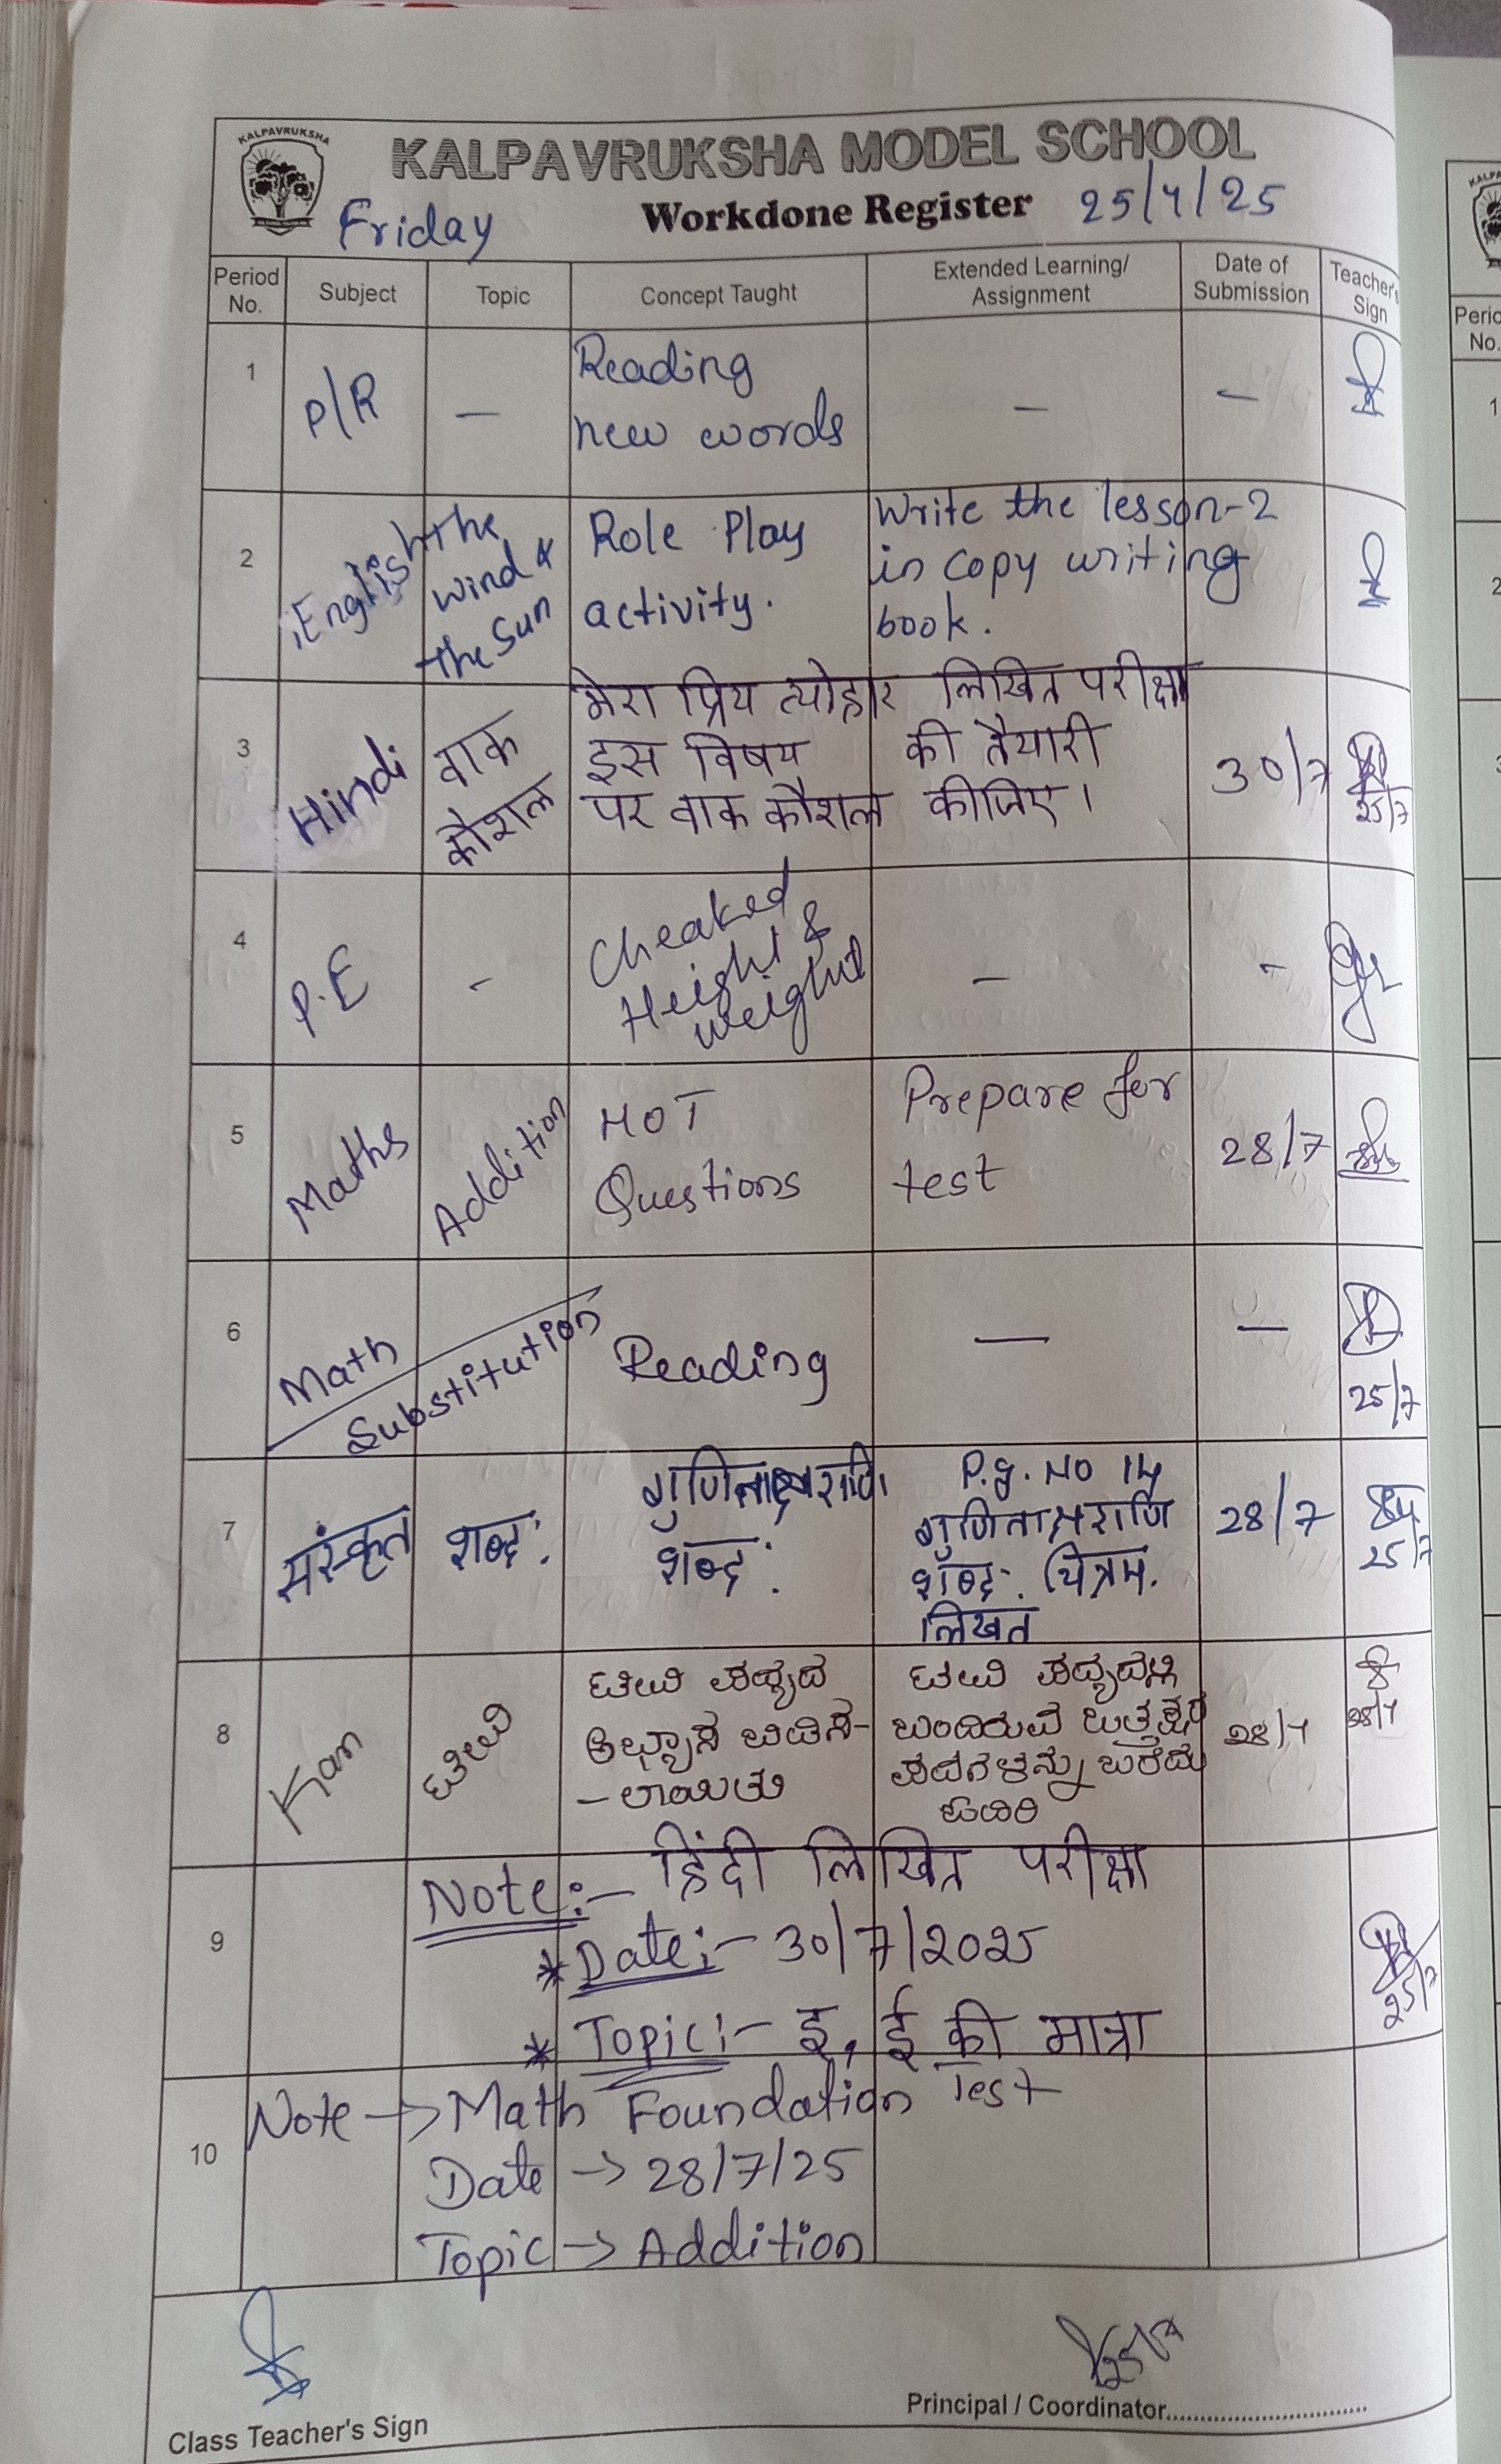 KALPAVRUKSHA
KALPAVRUKSHA MODEL SCHOOL
Friday Workdone Register 25/7/25
Period No. Subject Topic Concept Taught Extended Learning/ Assignment Date of Submission Teacher's Sign
1 P/R — Reading — —
new words
2 English The Wind & the Sun Role Play Write the lesson-2
activity. in copy writing
book.
3 Hindi वाक कौशल मेरा प्रिय त्योहार लिखित परीक्षा 30/7
इस विषय की तैयारी
पर वाक कौशल कीजिए। 25/7
4 P.E - Cheaked Height & weight — -
5 Maths Addition HOT Prepare for 28/7
Questions test
6 Math Substitution Reading — —
25/7
7 संस्कृत शब्द: गुणिताक्षराणि P.g. No 14 28/7
शब्द: गुणिताक्षराणि 25/7
शब्द: चित्रम.
लिखत
8 Kan ಪದ್ಯದ ಪದ್ಯದಲ್ಲಿ 28/7
ಅಭ್ಯಾಸ ಬಂದಿರುವ 28/7
ಪದಗಳನ್ನು ಬರೆದು
9 Note:- हिंदी लिखित परीक्षा
* Date:- 30/7/2025
25/7
* Topic:- इ, ई की मात्रा
10 Note → Math Foundation Test
Date → 28/7/25
Topic → Addition
Class Teacher's Sign
Principal / Coordinator..............................
KALPA
Perio
No.
1
2
3